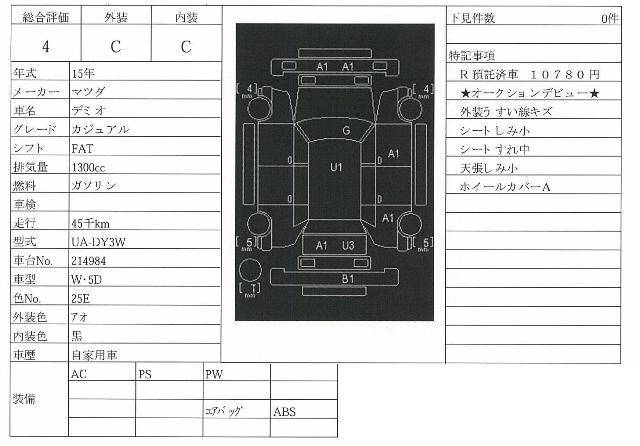 総合評価 外装 内装
4 C C
年式 15年
メーカー マツダ
車名 デミオ
グレード カジュアル
シフト FAT
排気量 1300cc
燃料 ガソリン
車検
走行 45千km
型式 UA-DY3W
車台No. 214984
車型 W・5D
色No. 25E
外装色 アオ
内装色 黒
車歴 自家用車
装備
AC PS PW
エアバッグ ABS
A1 A1
[4] mm
[4] mm
G
A1
U1
A1
[5] mm
A1 U3
[5] mm
B1
[T] mm
下見件数 0件
特記事項
R預託済車 10780円
★オークションデビュー★
外装うすい線キズ
シートしみ小
シートすれ中
天張しみ小
ホイールカバーA